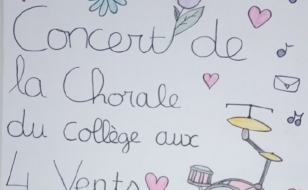 Concert de
la Chorale
du collège aux
4 Vents